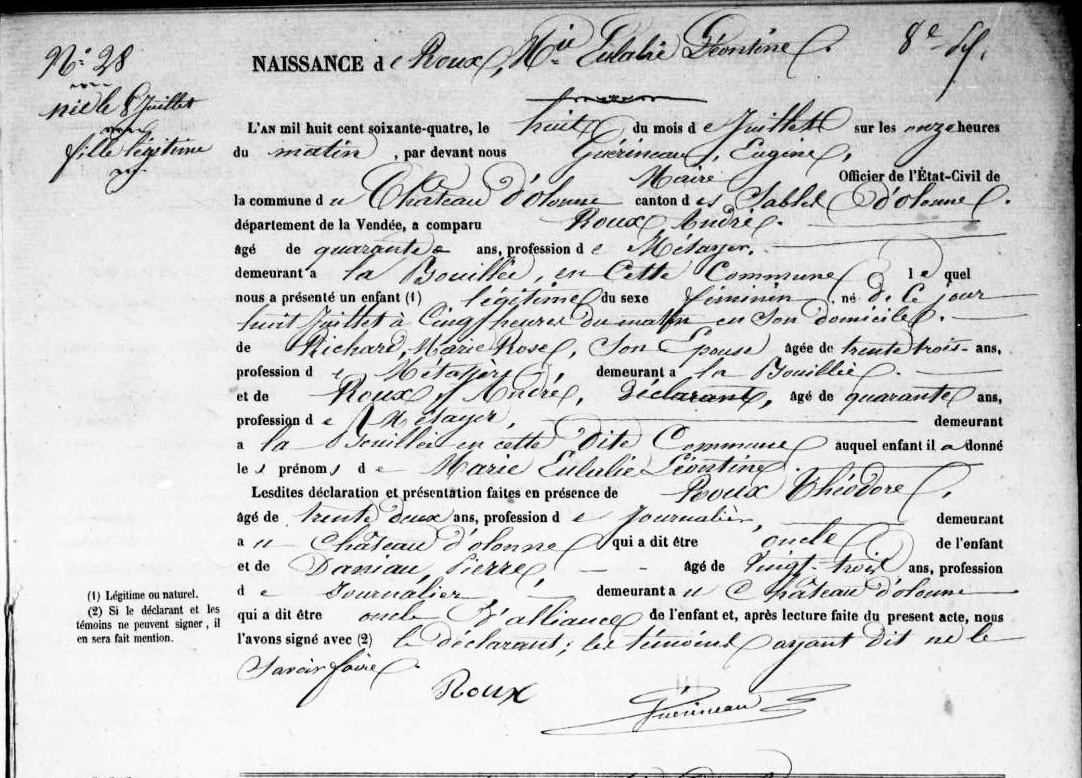 N.° 28
NAISSANCE de Roux, Mie Eulalie Léontine.
8e
née le 8 Juillet
fille légitime
L'AN mil huit cent soixante-quatre, le huit du mois de Juillet sur les onze heures
du matin, par devant nous Guérineau, Eugène,
Maire Officier de l'État-Civil de
la commune du Château d'olonne canton des Sables d'olonne.
département de la Vendée, a comparu Roux, André.
âgé de quarante ans, profession de Métayer.
demeurant à la Bouillée, en Cette Commune lequel
nous a présenté un enfant (1) légitime du sexe féminin, né de Ce jour
huit Juillet à Cinq heures du matin en Son domicile.
de Richard, Marie Rose, Son Epouse âgée de trente trois ans,
profession de Métayère, demeurant a la Bouillée.
et de Roux, André, déclarant, âgé de quarante ans,
profession de Métayer, demeurant
a la Bouillée en cette dite Commune auquel enfant il a donné
les prénoms de Marie Eulalie Léontine.
Lesdites déclaration et présentation faites en présence de Roux Théodore,
âgé de trente deux ans, profession de Journalier, demeurant
au Château d'olonne qui a dit être oncle de l'enfant
et de Daniau, Pierre, âgé de Vingt-trois ans, profession
de Journalier, demeurant au Château d'olonne
qui a dit être oncle d'alliance de l'enfant et, après lecture faite du présent acte, nous
l'avons signé avec (2) le déclarant; les témoins ayant dit ne le
Savoir faire.
(1) Légitime ou naturel.
(2) Si le déclarant et les
témoins ne peuvent signer, il
en sera fait mention.
Roux
Guérineau